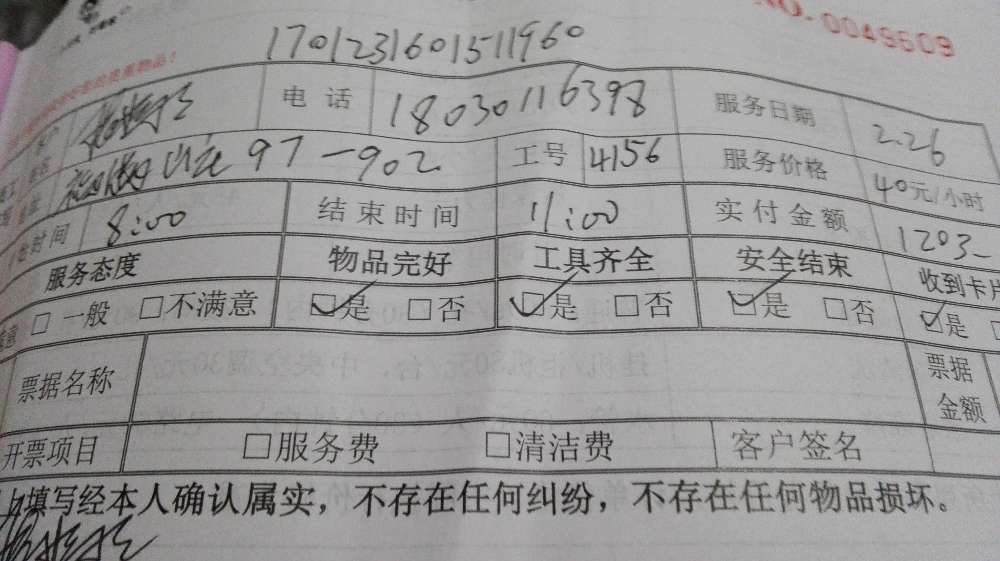 NO.0049609
1701231601511960
电话 18030116398 服务日期 2.26
97-902 工号 4156 服务价格 40元/小时
时间 8:00 结束时间 11:00 实付金额 1203-
服务态度 物品完好 工具齐全 安全结束 收到卡片
□一般 □不满意 ☑是 □否 ☑是 □否 ☑是 □否 ☑是
票据名称 票据金额
开票项目 □服务费 □清洁费 客户签名
填写经本人确认属实，不存在任何纠纷，不存在任何物品损坏。